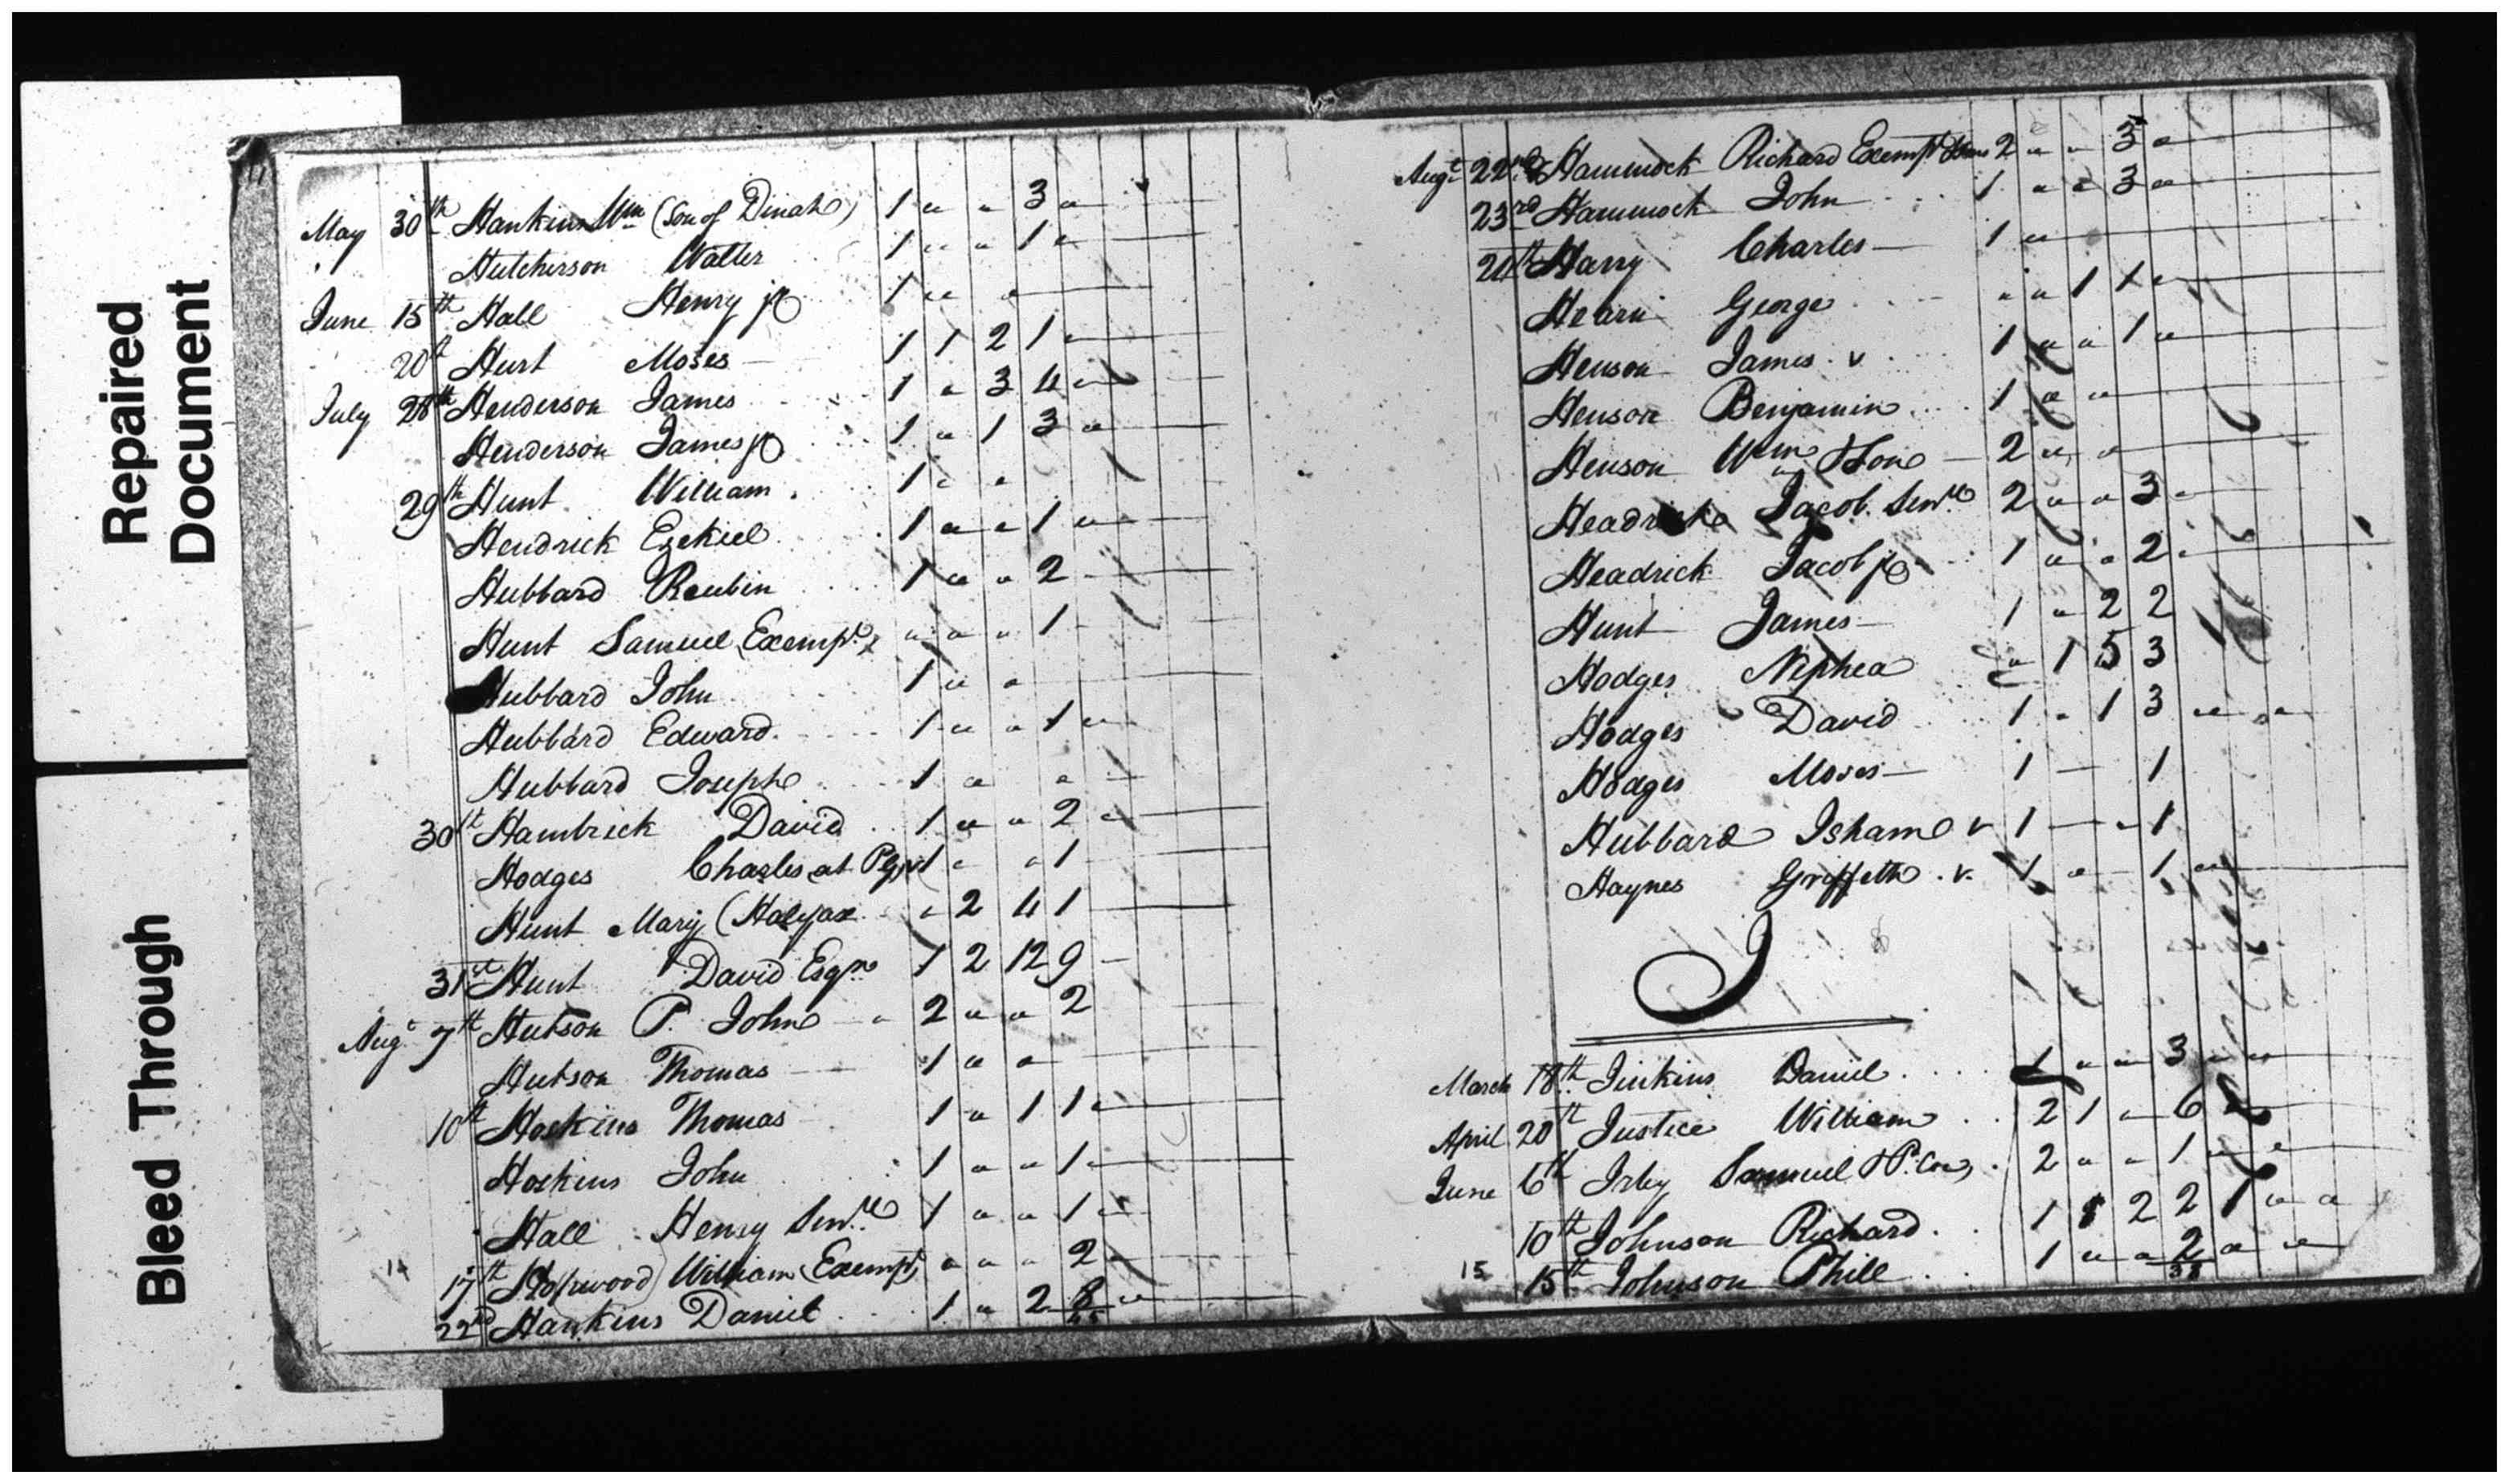 Repaired
Document
Bleed Through
May 30th Hankins Wm (Son of Dinah) 1 " " 3 "
Hutcherson Walter 1 " " 1 "
June 15th Hall Henry jr 1 " "
20th Hurt Moses 1 1 2 1 "
July 28th Henderson James 1 " 3 4 "
Henderson James jr 1 " 1 3 "
29th Hunt William 1 " "
Hendrick Ezekiel 1 " " 1 "
Hubbard Reubin 1 " " 2
Hunt Samuel Exempt " " " 1
Hubbard John 1 " "
Hubbard Edward 1 " " 1 "
Hubbard Joseph 1 " "
30th Hambrick David 1 " " 2 "
Hodges Charles at 1 " " 1
Hunt Mary (Halifax " 2 4 1
31st Hunt David Esqr 1 2 12 9
Augt 7th Hutson P. John 2 " " 2
Hutson Thomas 1 " "
10th Hoskins Thomas 1 " 1 1 "
Hoskins John 1 " " 1
Hall Henry Senr 1 " " 1 "
14
17th Hopwood William Exempt " " " 2
22nd Hankins Daniel 1 " 2 8 "
Augt 22nd Hammock Richard Exempt 2 " " 3 "
23rd Hammock John 1 " " 3 "
24th Harry Charles 1 "
Hearn George " " 1 1 "
Henson James v 1 " " 1 "
Henson Benjamin 1 " "
Henson Wm & Son 2 " "
Headrick Jacob Senr 2 " " 3 "
Headrick Jacob jr 1 " " 2
Hunt James 1 " 2 2
Hodges Nephea " 1 5 3
Hodges David 1 " 1 3 " "
Hodges Moses 1 — 1
Hubbard Isham v 1 — " 1
Haynes Griffeth v. 1 " 1 "
J
March 18th Jinkins Daniel 1 " " 3 " "
April 20th Justice William 2 1 " 6 "
June 6th Irby Samuel 2 " " 1 " "
10th Johnson Richard 1 1 2 2 1 " "
15
15th Johnson Phill 1 " " 2 " "
38